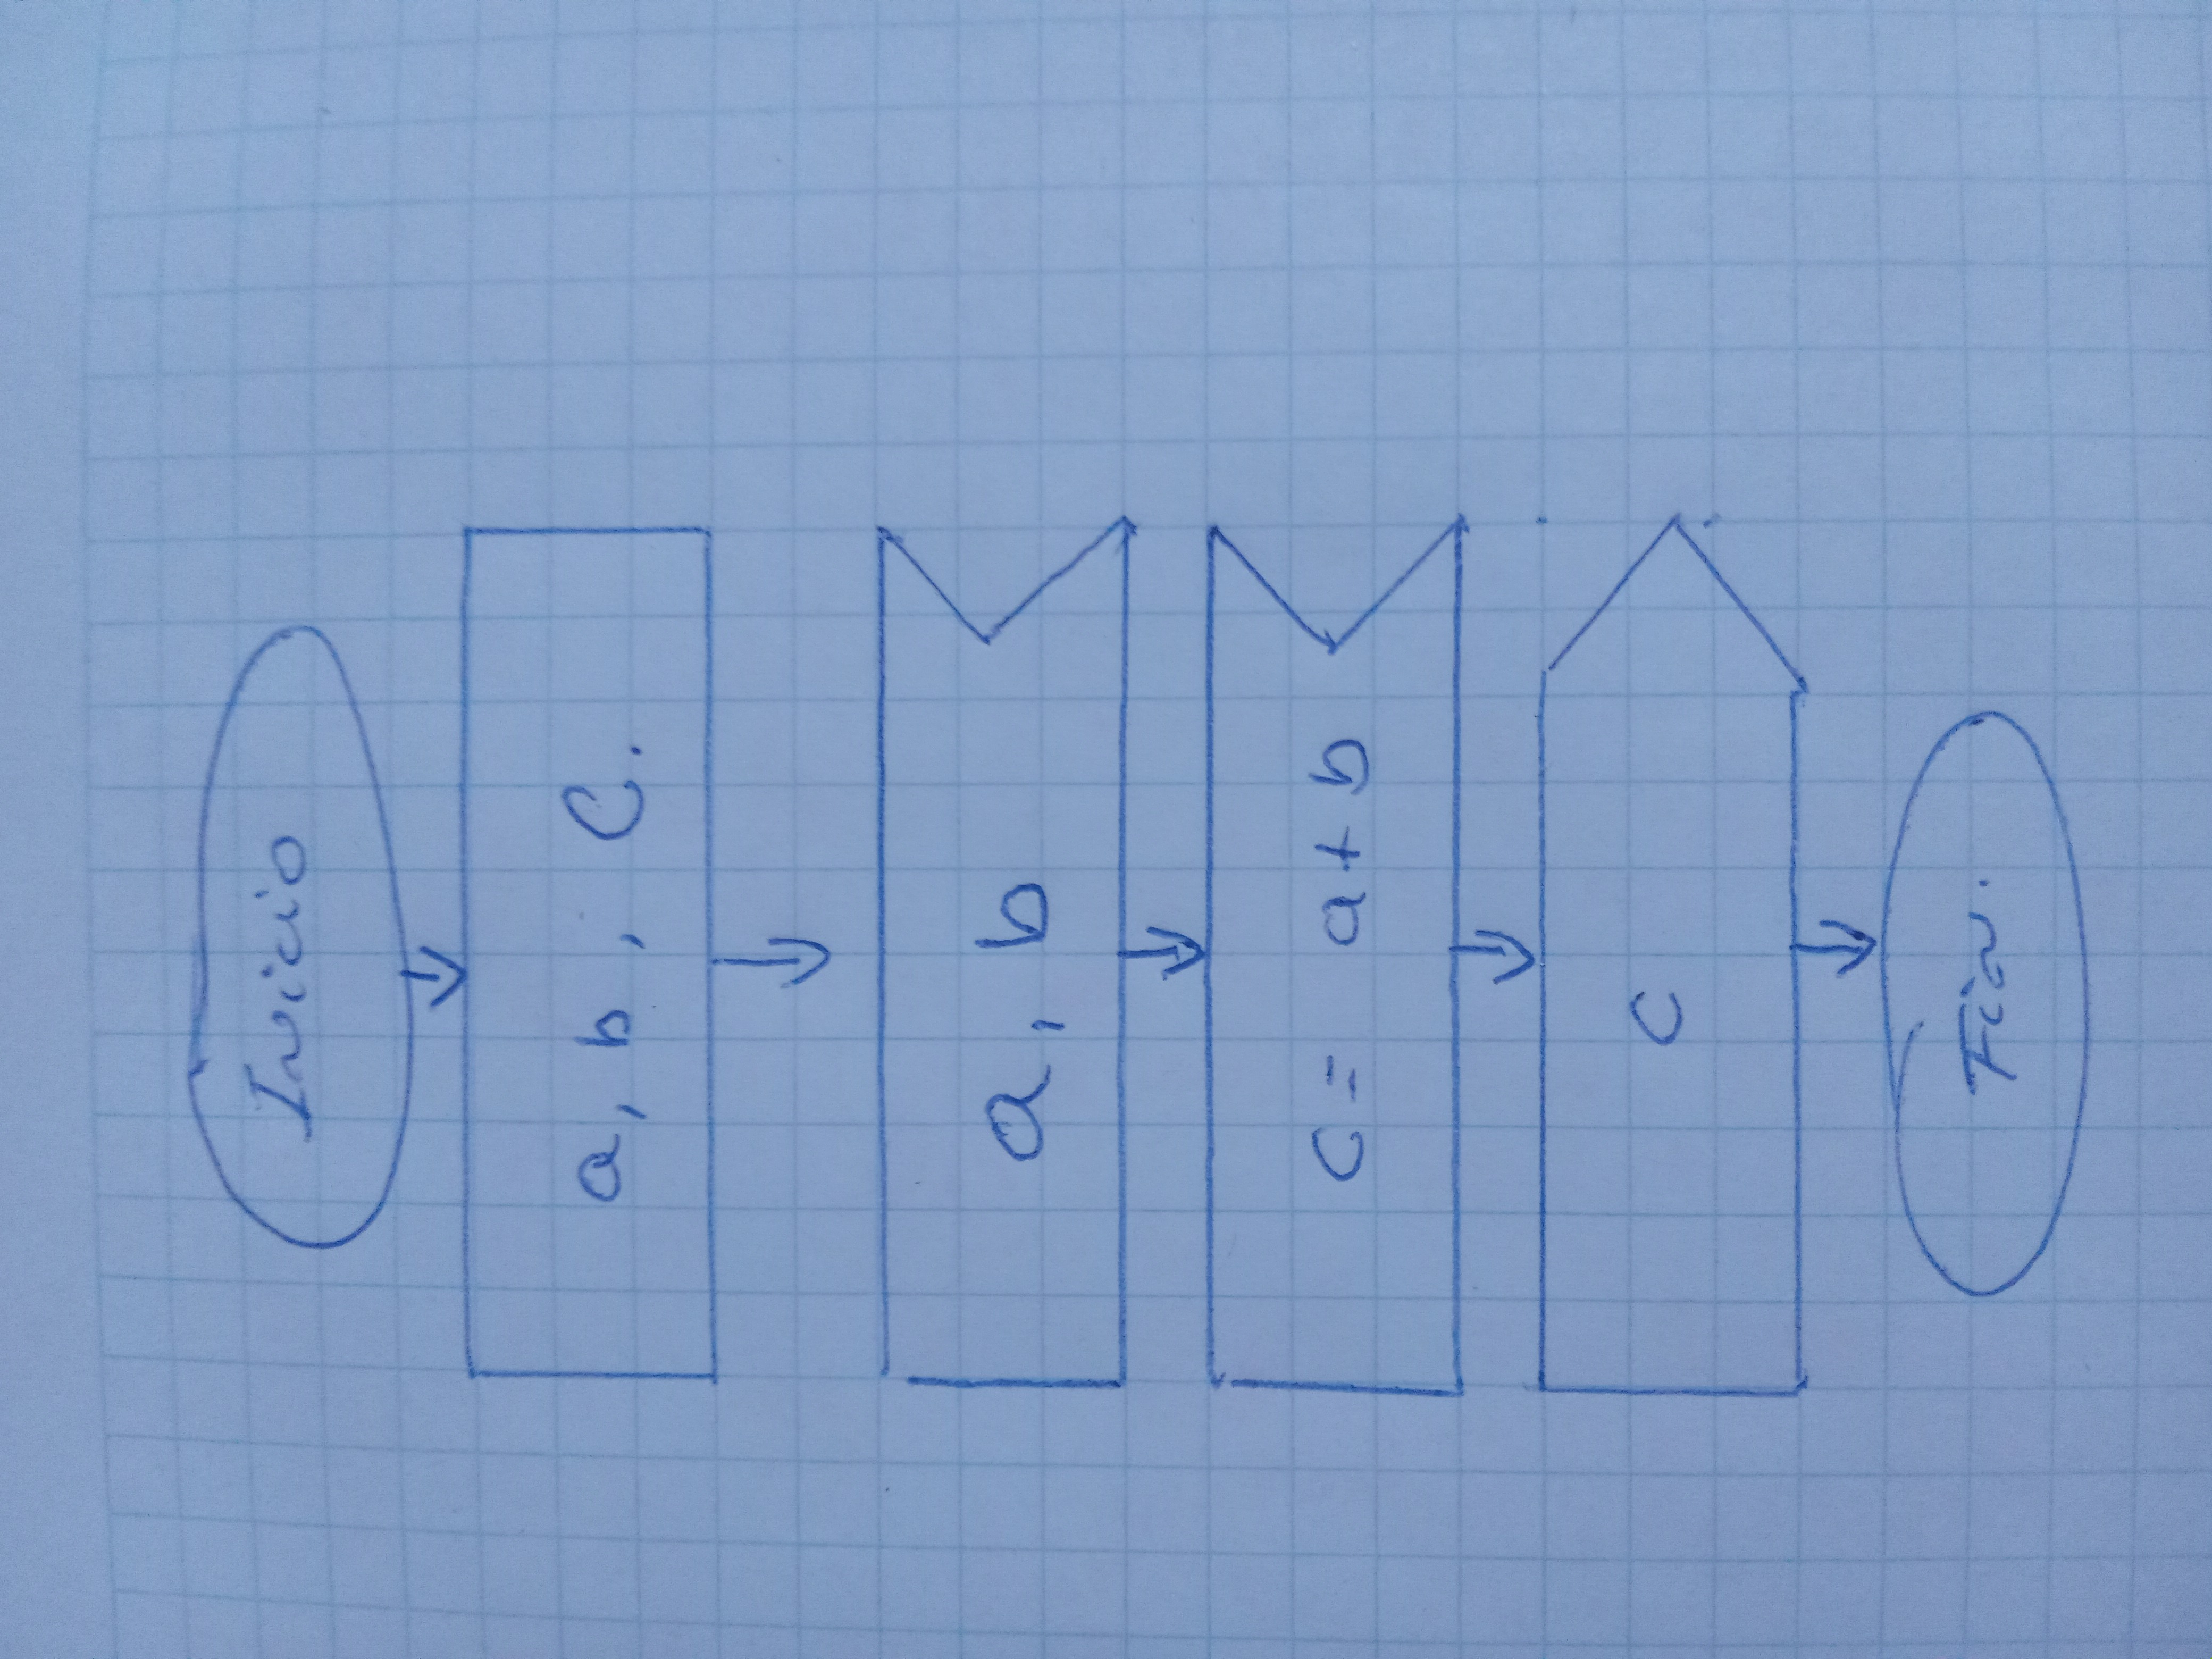 Inicio
a, b, C.
a, b
c= a+b
c
Fin.